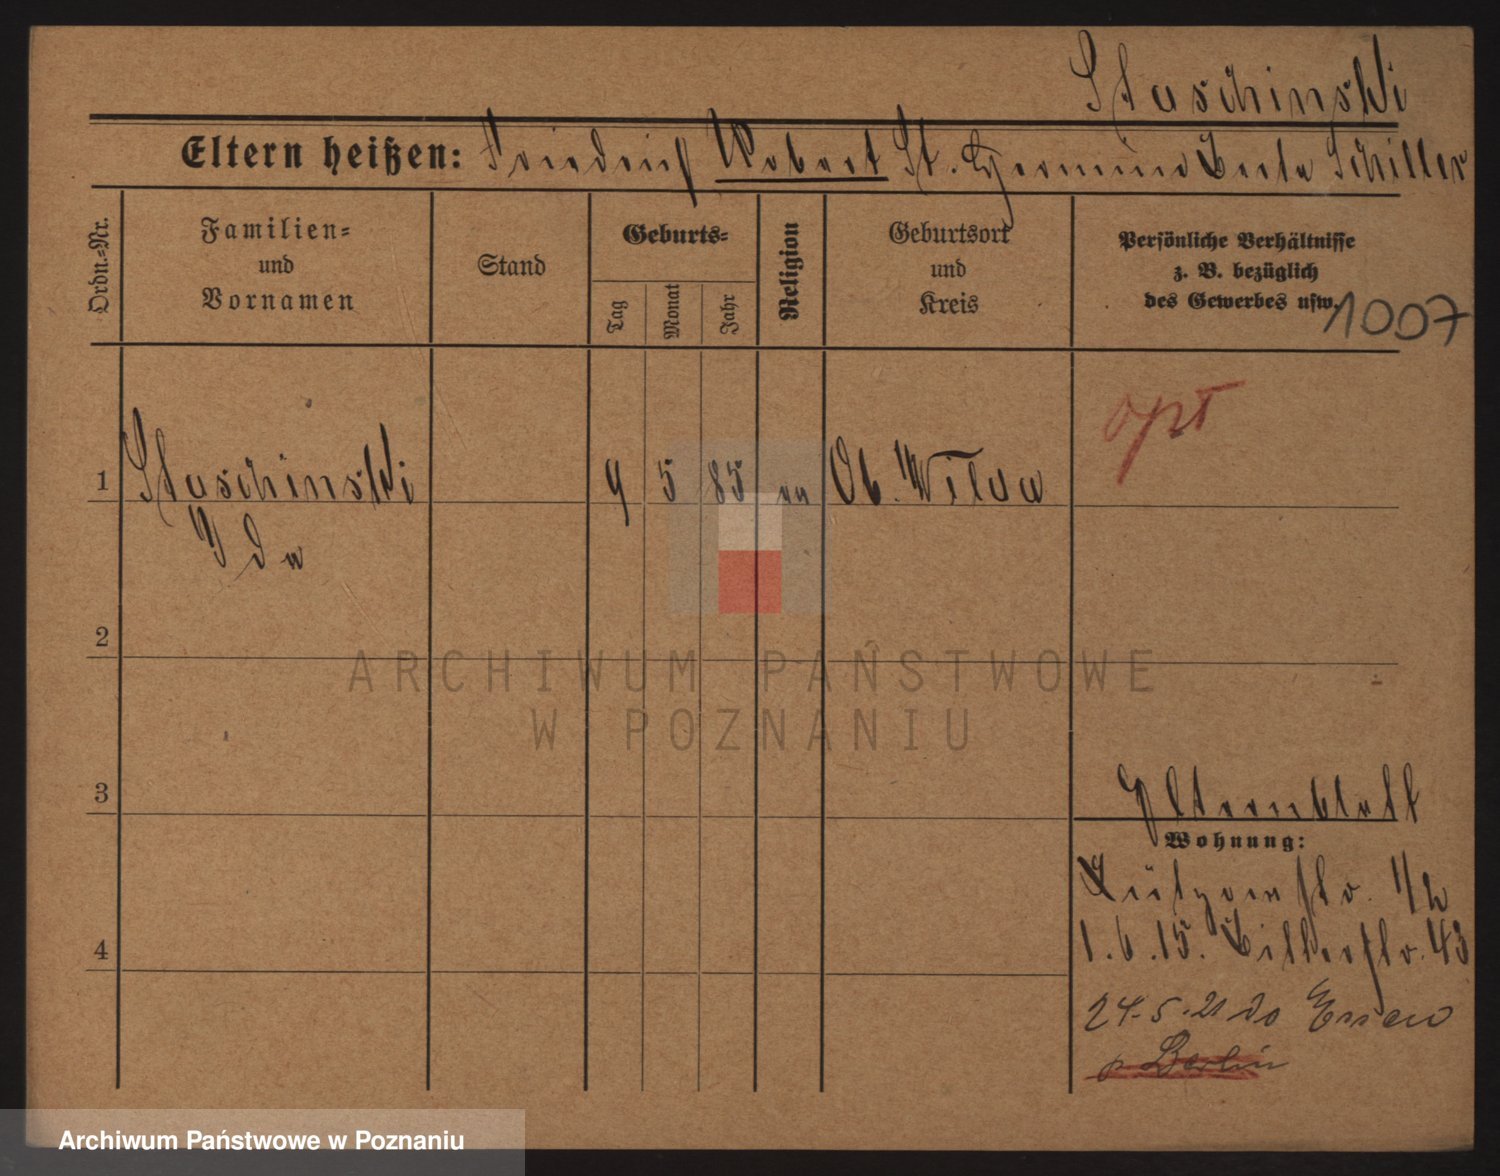 Staschinski
Eltern heißen: Friedrich Robert St. Hermine Berta Schiller
Ordn.-Nr.
Familien-
und
Vornamen
Stand
Geburts-
Tag
Monat
Jahr
Religion
Geburtsort
und
Kreis
Persönliche Verhältnisse
z. B. bezüglich
des Gewerbes usw.
1007
opt
1 Staschinski 9 5 85 ev Ob. Wilda
Ida
2
ARCHIWUM PAŃSTWOWE
W POZNANIU
3
Elternblatt
Wohnung:
Lützowstr. 1/2
4
1.6.15. Bitterstr. 43
24.5.21 do Essen
p. Berlin
Archiwum Państwowe w Poznaniu